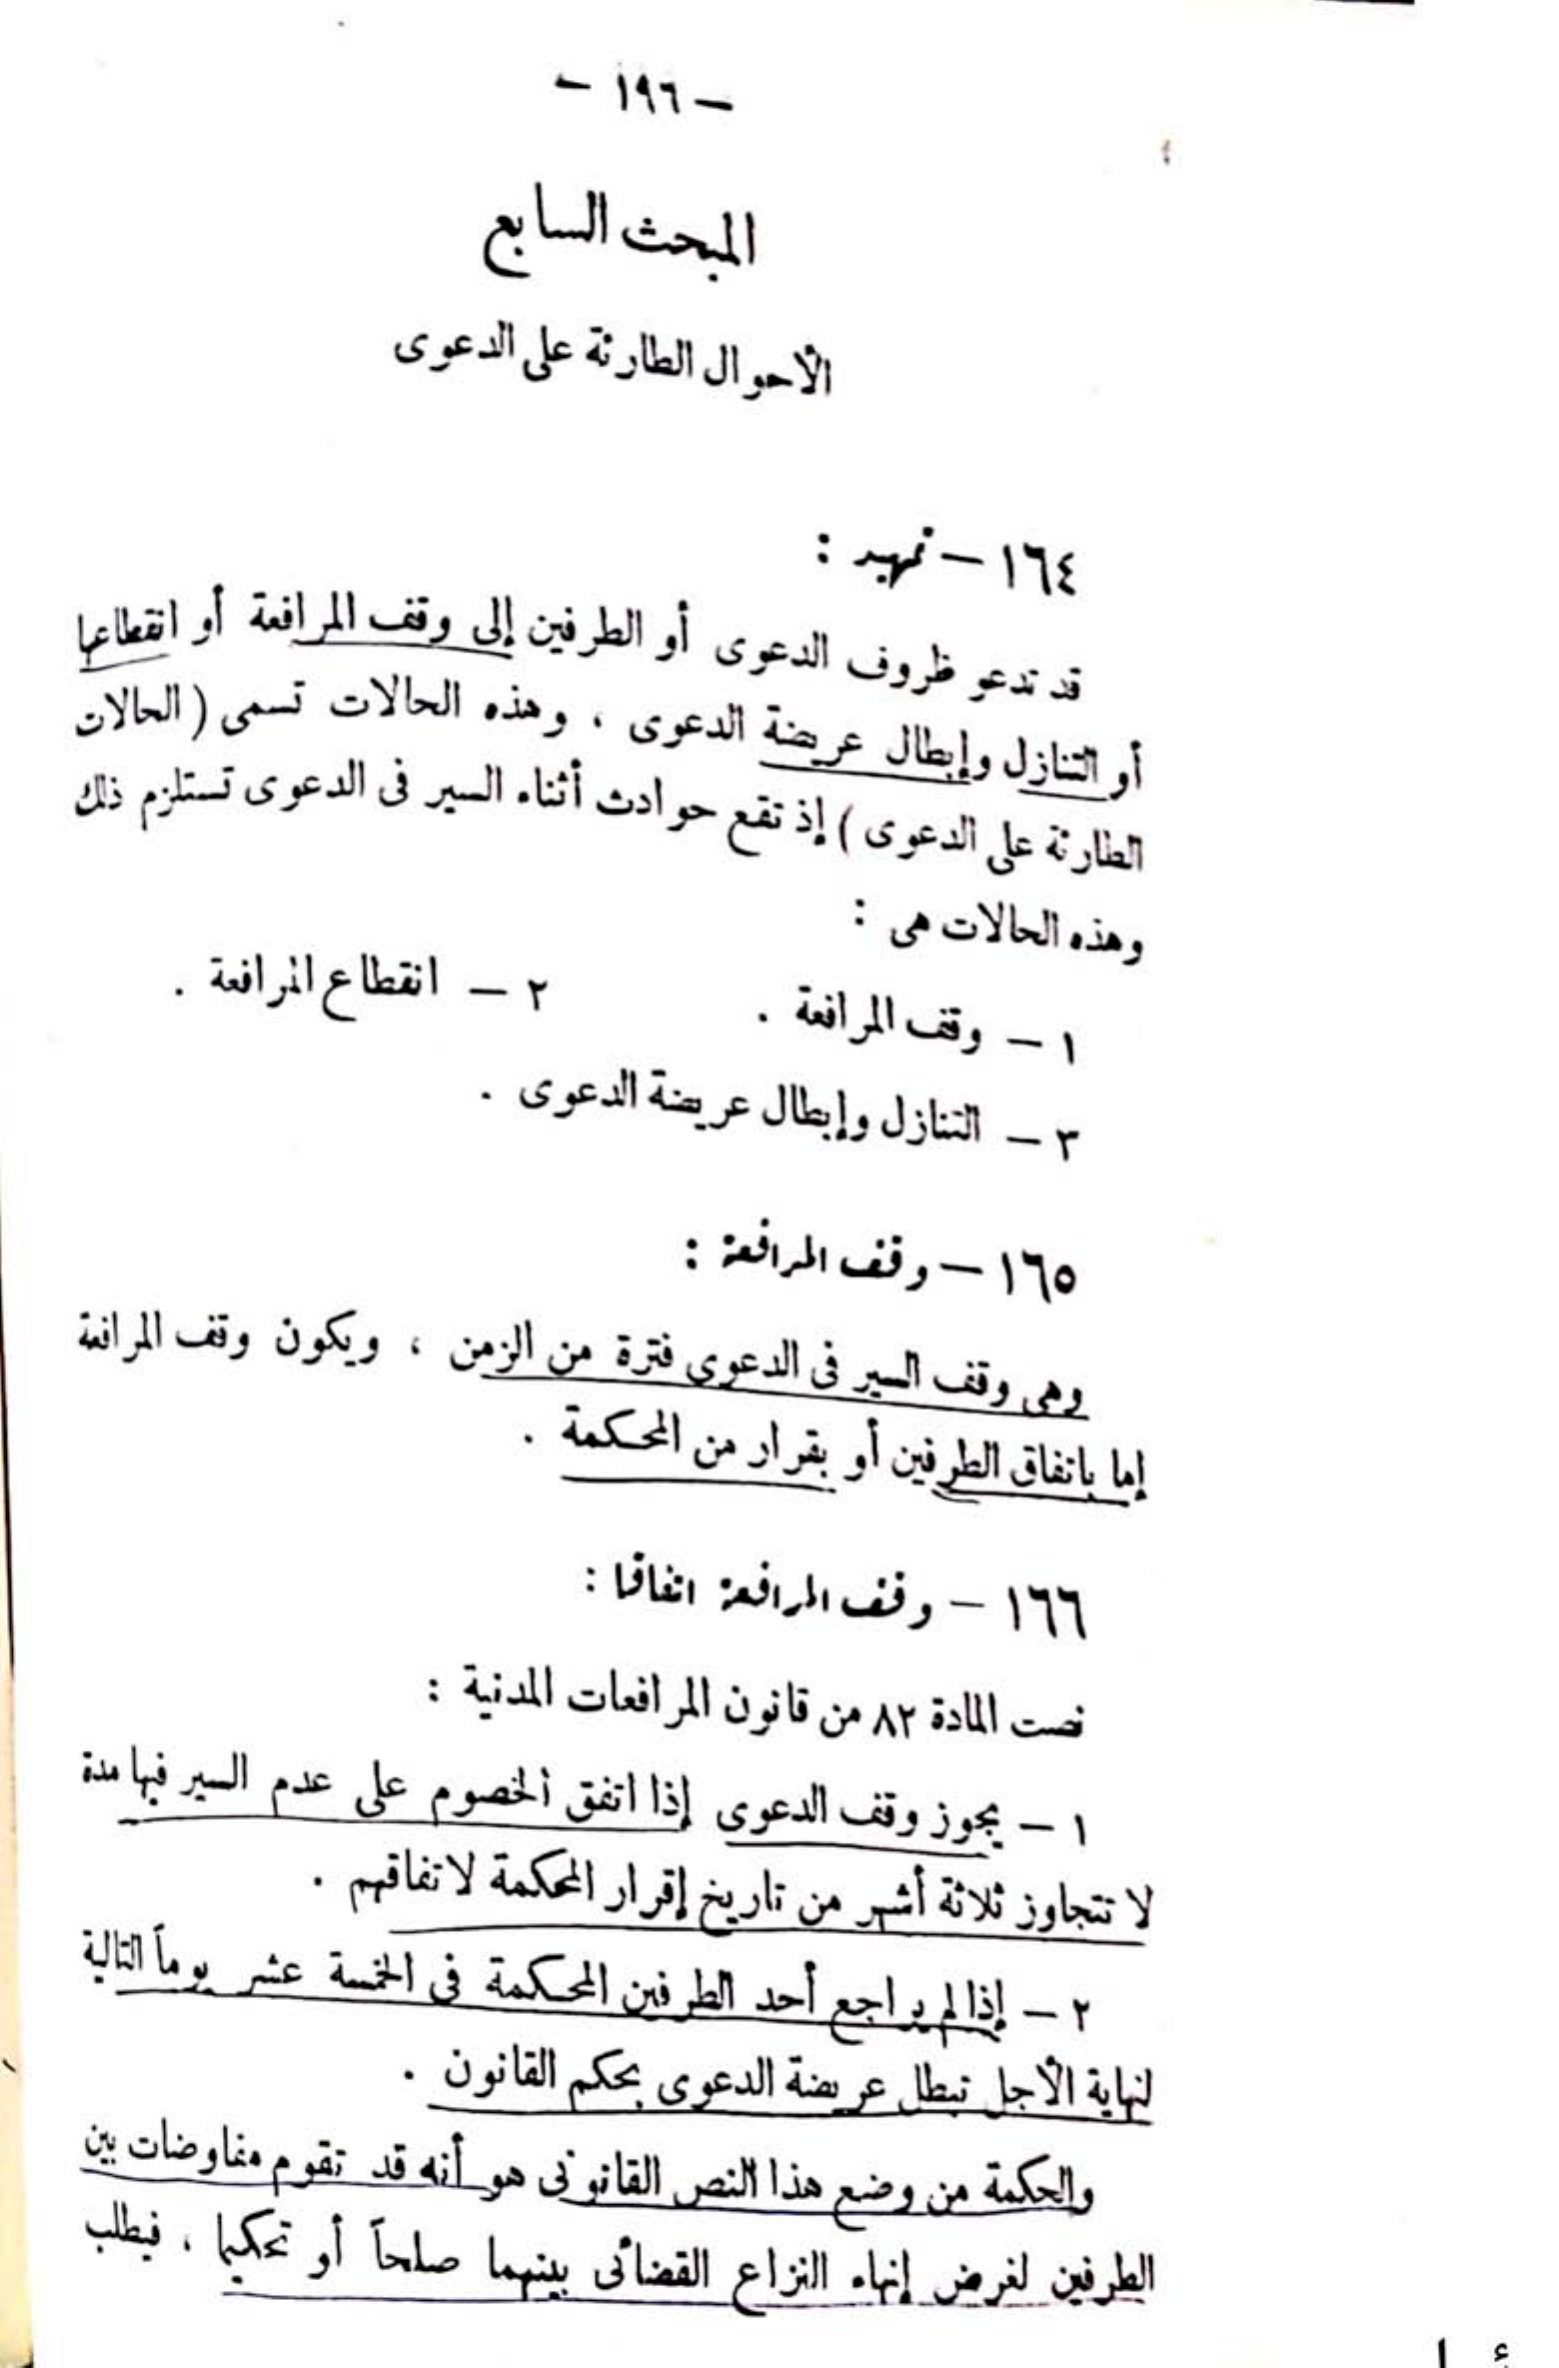 – ١٩٦ –
المبحث السابع
الأحوال الطارئة على الدعوى
١٦٤ – تمهيد :
قد تدعو ظروف الدعوى أو الطرفين إلى وقف المرافعة أو انقطاعها
أو التنازل وإبطال عريضة الدعوى ، وهذه الحالات تسمى ( الحالات
الطارئة على الدعوى ) إذ تقع حوادث أثناء السير فى الدعوى تستلزم ذلك
وهذه الحالات هى :
١ – وقف المرافعة . ٢ – انقطاع المرافعة .
٣ – التنازل وإبطال عريضة الدعوى .
١٦٥ – وقف المرافعة :
وهى وقف السير فى الدعوى فترة من الزمن ، ويكون وقف المرافعة
إما باتفاق الطرفين أو بقرار من المحكمة .
١٦٦ – وقف المرافعة اتفاقا :
نصت المادة ٨٢ من قانون المرافعات المدنية :
١ – يجوز وقف الدعوى إذا اتفق الخصوم على عدم السير فيها مدة
لا تتجاوز ثلاثة أشهر من تاريخ إقرار المحكمة لاتفاقهم .
٢ – إذا لم يراجع أحد الطرفين المحكمة فى الخمسة عشر يوماً التالية
لنهاية الأجل تبطل عريضة الدعوى بحكم القانون .
والحكمة من وضع هذا النص القانونى هو أنه قد تقوم مفاوضات بين
الطرفين لغرض إنهاء النزاع القضائى بينهما صلحاً أو تحكيما ، فيطلب